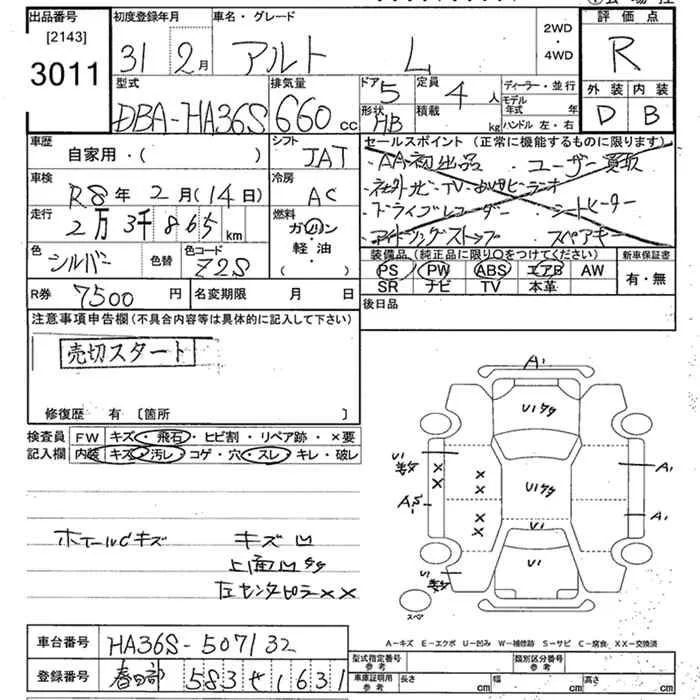 出品番号
[2143]
3011
初度登録年月
31 2月
車名・グレード
アルト L
2WD
・
4WD
評価点
R
外装 内装
D B
型式
DBA-HA36S
排気量
660 cc
ドア
5
定員
4人
形状
HB
積載
kg
ディーラー・並行
モデル
年式 年
ハンドル 左・右
車歴
自家用・( )
シフト
IAT
セールスポイント (正常に機能するものに限ります)
・AA初出品 ・ユーザー買取
・社外ナビ・TV・
・ドライブレコーダー ・シートヒーター
・アイドリングストップ スペアキー
車検
R8年 2月(14日)
冷房
AC
走行
2万3千865km
燃料
ガソリン
軽油
色
シルバー
色替
色コード
Z2S
装備品 (純正品に限り○をつけてください)
PS PW ABS エアB AW
SR ナビ TV 本革
新車保証書
有・無
R券 7500円
名変期限 月 日
後日品
注意事項申告欄(不具合内容等は具体的に記入して下さい)
売切スタート
修復歴 有 [箇所 ]
検査員 FW キズ・飛石・ヒビ割・リペア跡・×要
記入欄 内装 キズ・汚レ・コゲ・穴・スレ・キレ・破レ
ホイールCキズ
キズ凹
上面凹
左センタピラ××
A1
U1
U1
U1
A1
A1
U1
U1
スペア
車台番号 HA36S-507132
登録番号 春日部 583せ1631
A-キズ E-エクボ U-凹み W-補修跡 S-サビ C-腐食 XX-交換済
型式指定番号
参考
類別区分番号
参考
車庫証明用
参考
長さ cm 幅 cm 高さ cm